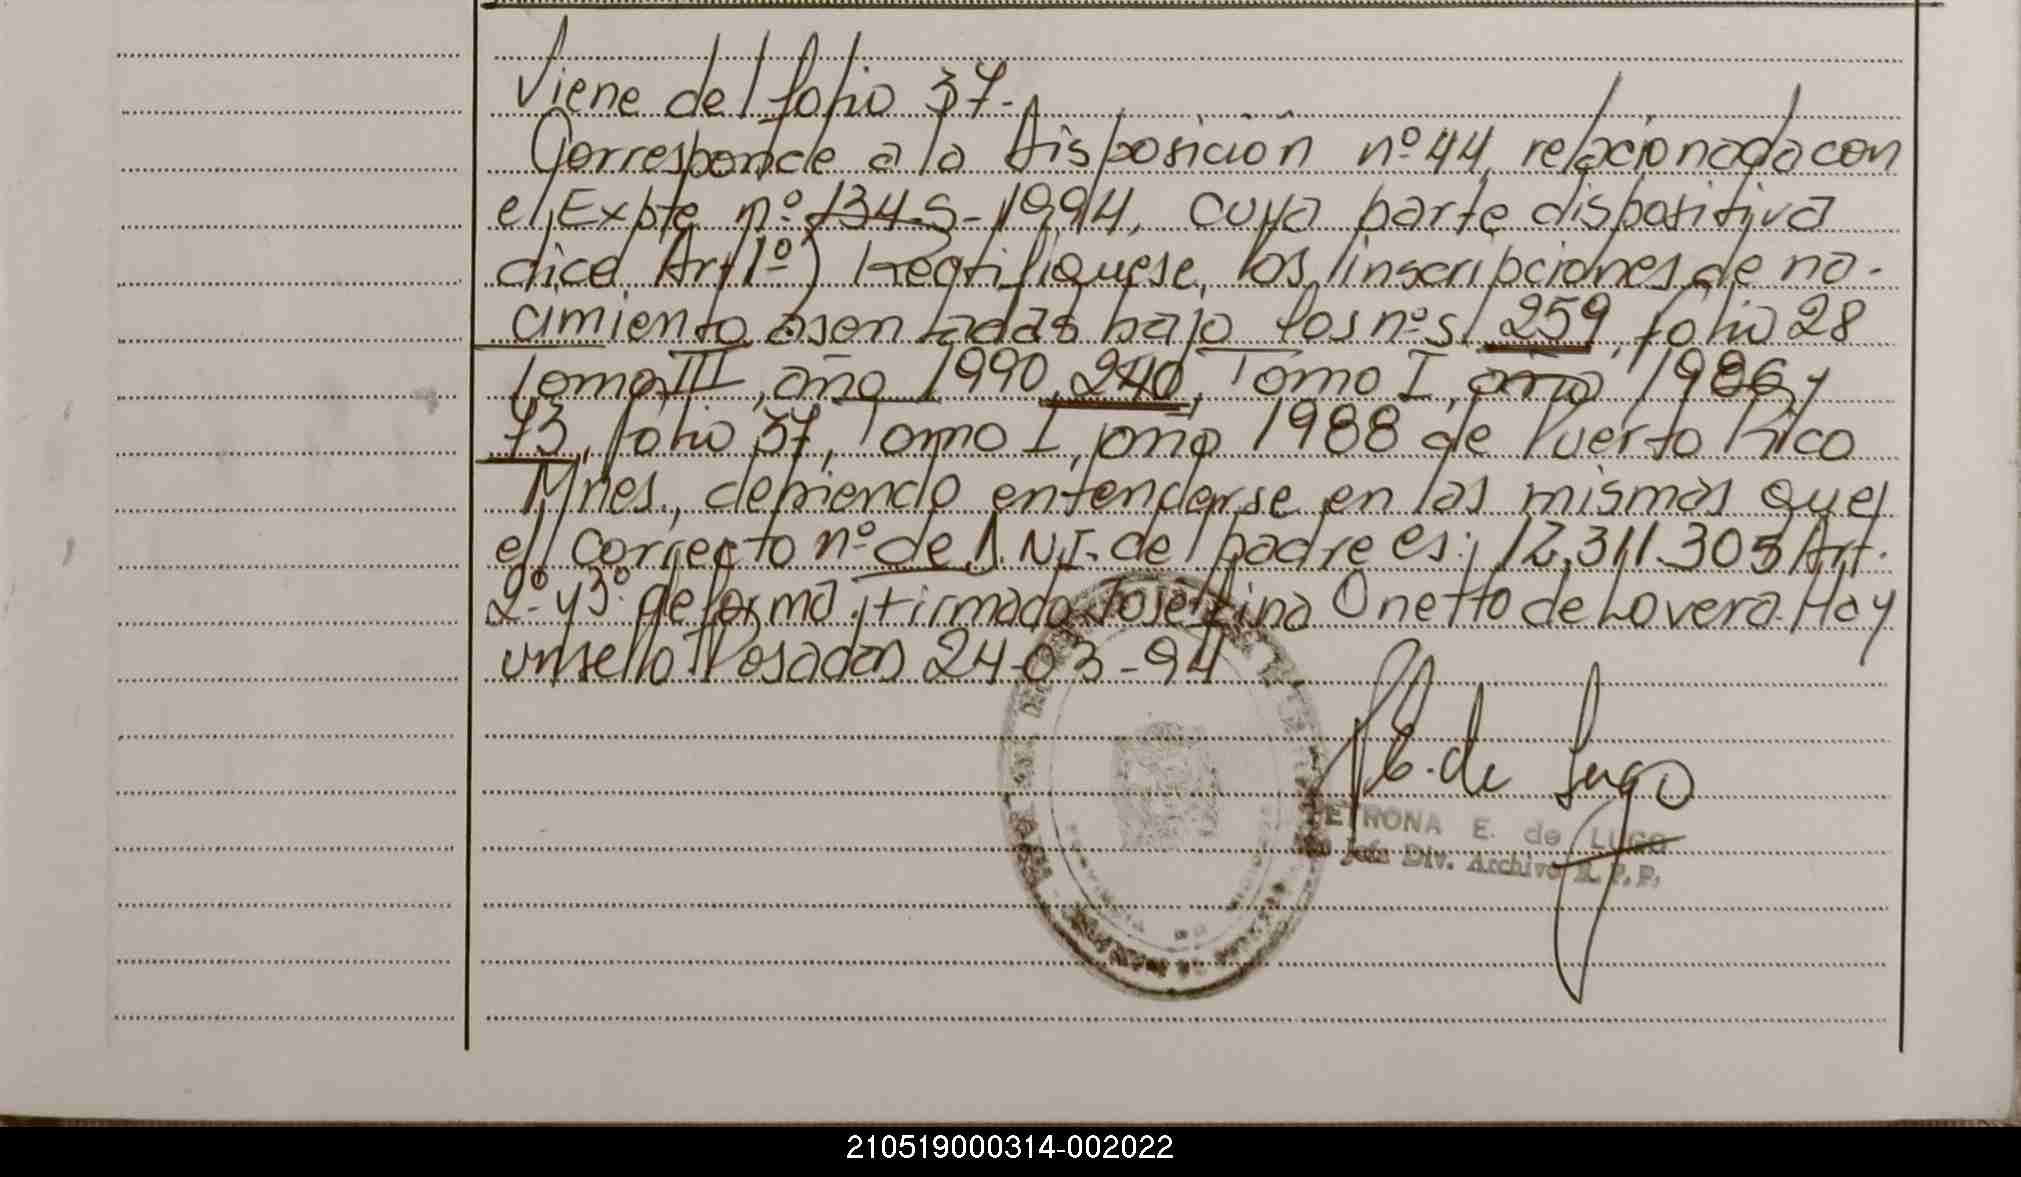 Viene del folio 37.-
Corresponde a la Disposición nº 44, relacionada con
el Expte nº 1345-1994, cuya parte dispositiva
dice Art 1º) Rectifiquese, las inscripciones de na-
cimiento asentadas bajo los nºs 259, folio 28
Tomo III, año 1990, 240, Tomo I, año 1986 y
73, folio 37, Tomo I, año 1988 de Puerto Rico
Mnes., debiendo entenderse en las mismas que
el correcto nº de D.N.I. del padre es: 12.311.305 Art.
2º y 3º de forma. Firmado Josefina Onetto de Lovera. Hay
un sello. Posadas 24-03-94
E. de Lugo
PETRONA E. de LUGO
Jefa Div. Archivo R. P. P.
210519000314-002022